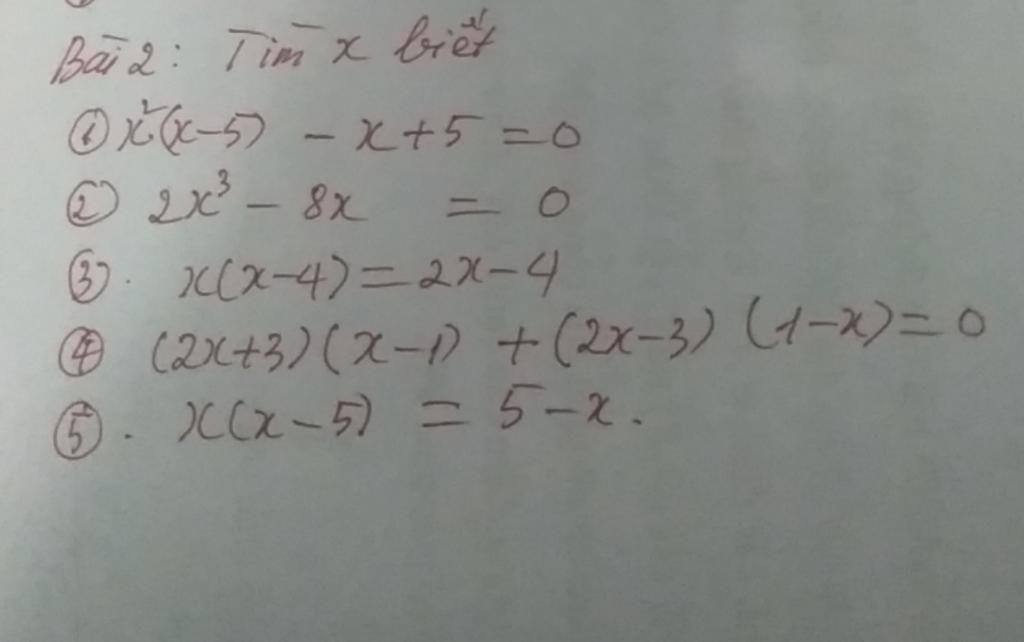 Bài 2: Tìm x biết
① x²(x-5) - x+5 = 0
② 2x³ - 8x = 0
③. x(x-4) = 2x-4
④ (2x+3)(x-1) + (2x-3) (1-x) = 0
⑤. x(x-5) = 5-x.